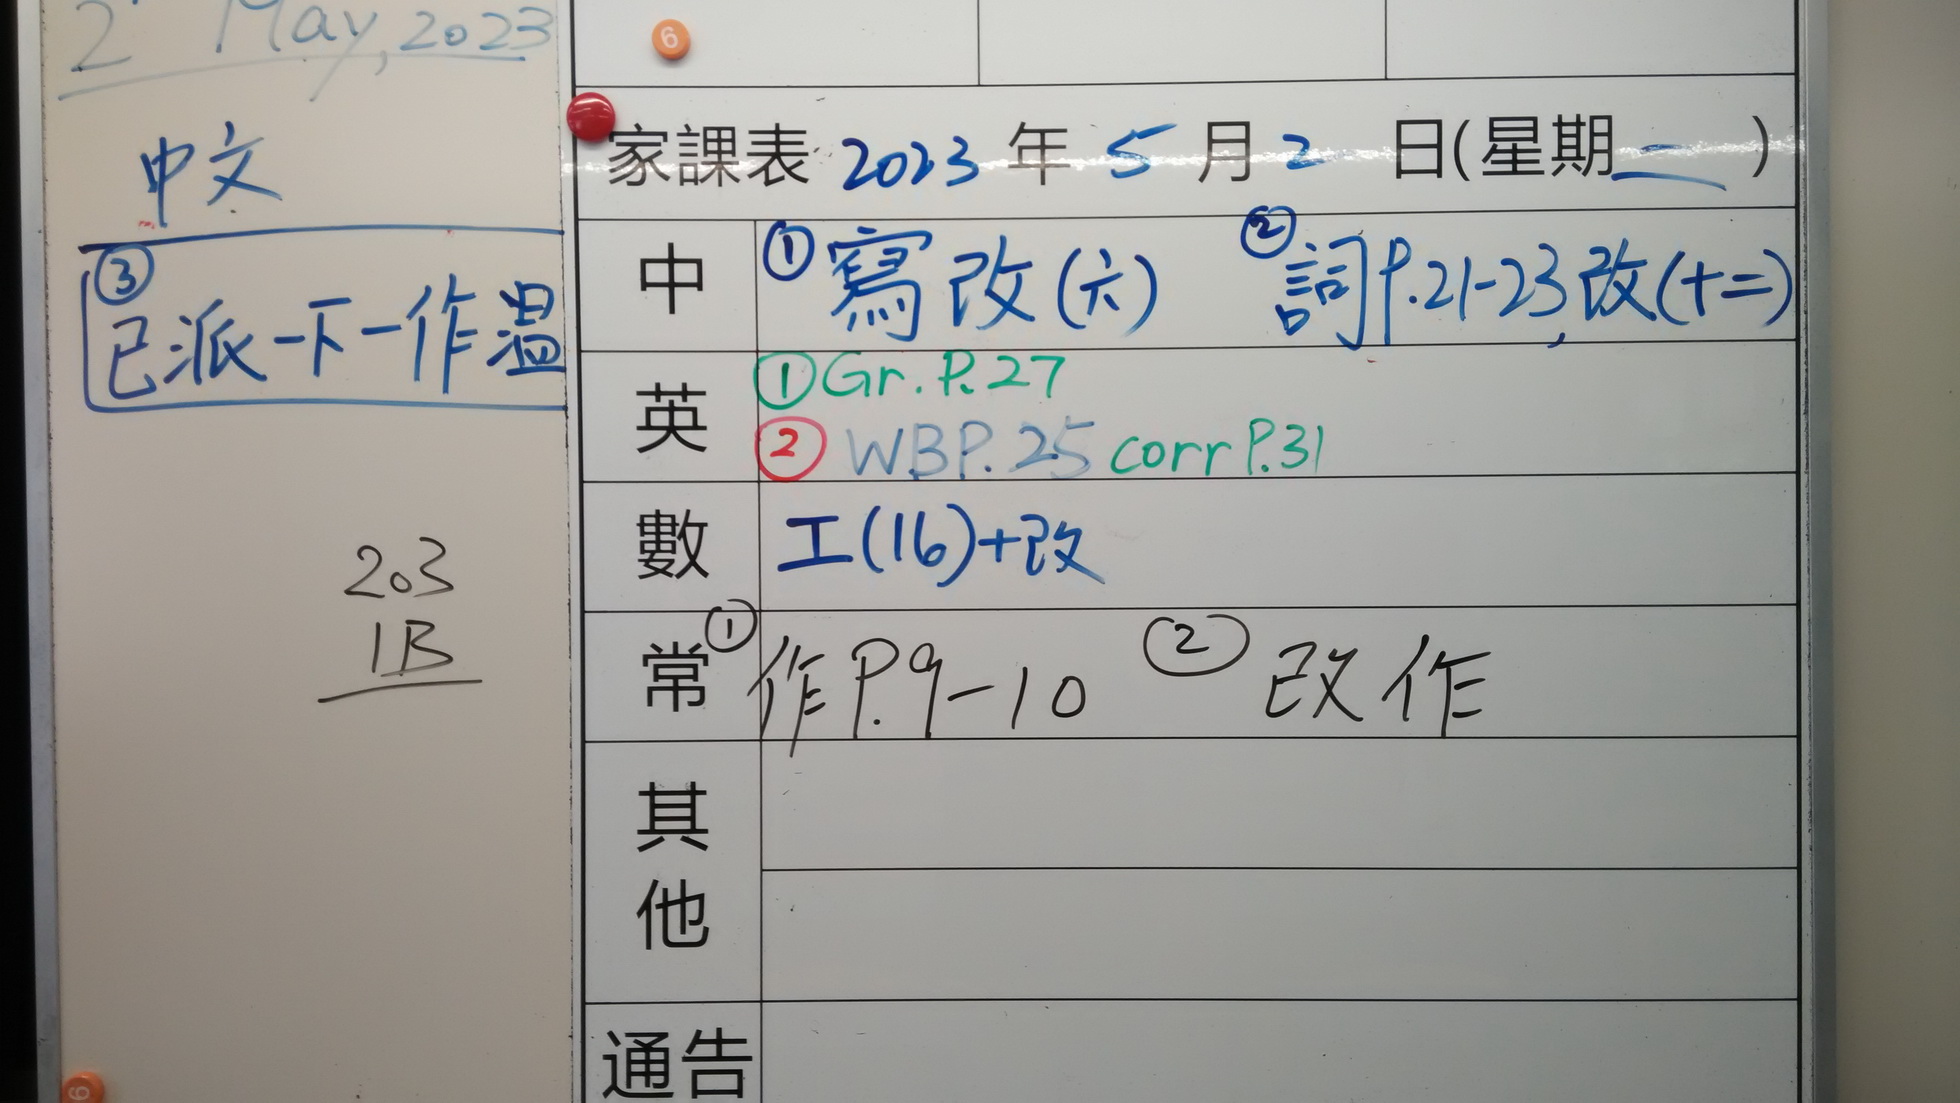 2 May, 2023
中文
③
已派一下一作温
203
1B
6
家課表 2023 年 5 月 2 日(星期二)
中 ①寫改(六) ②詞P.21-23,改(十二)
英 ①Gr. P.27
② WB P.25 corr P.31
數 工(16)+改
常 ①作P.9-10 ②改作
其他
通告
6